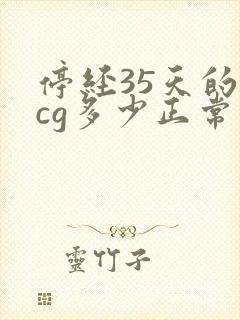 停经35天的
cg多少正常
靈竹子